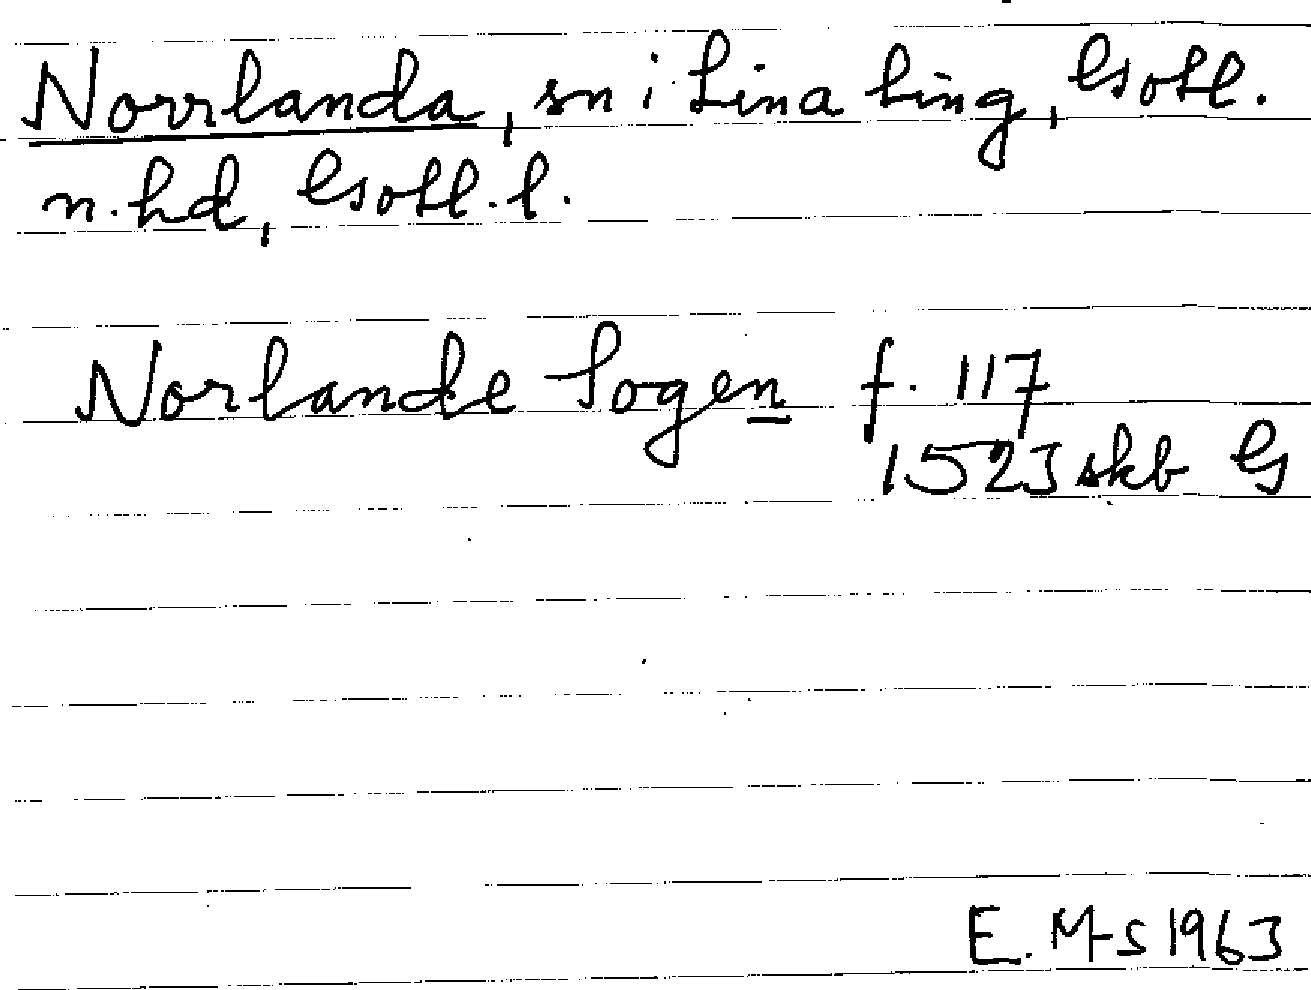 Norrlanda, sn i Lina ting, Gotl.
n. hd, Gotl. l.
Norlande Sogen f. 117
1523 skb G
E. M-S 1963